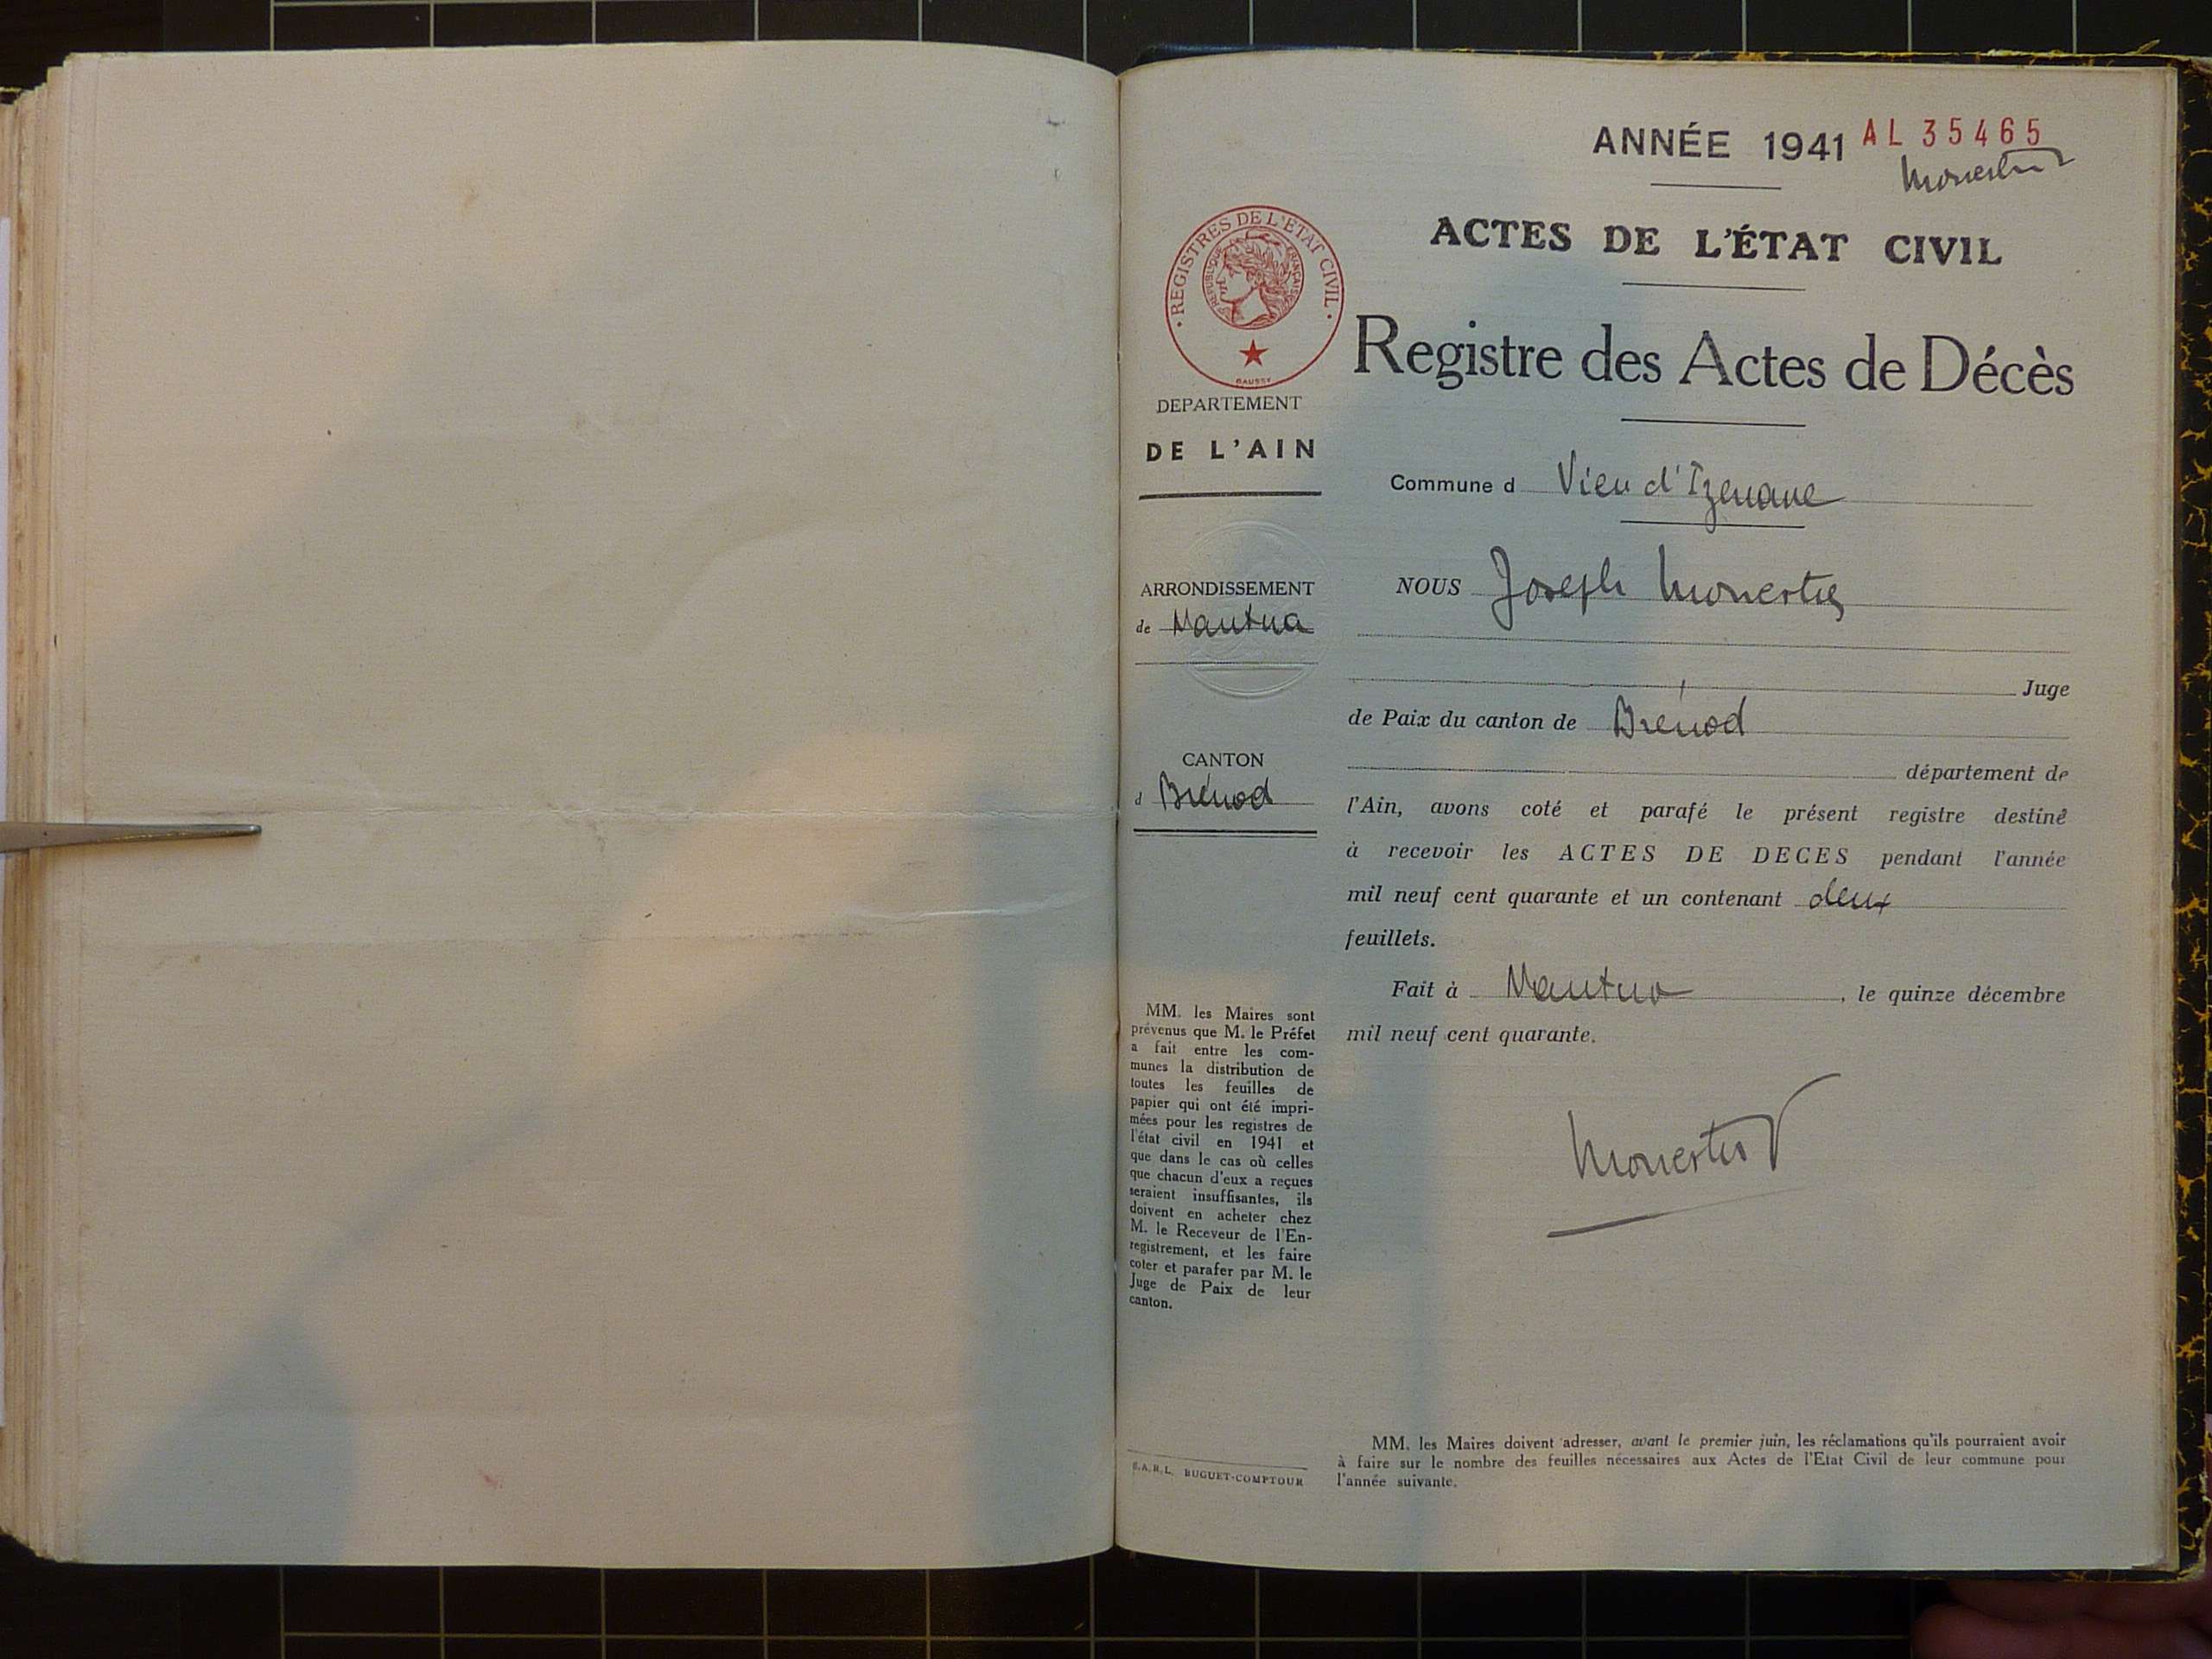 ANNÉE 1941
AL 35465
REGISTRES DE L'ÉTAT CIVIL
RÉPUBLIQUE FRANÇAISE
ACTES DE L'ÉTAT CIVIL
Registre des Actes de Décès
DEPARTEMENT
DE L'AIN
Commune d Vieu d'Izenave
ARRONDISSEMENT
de Nantua
NOUS Joseph Monestier
Juge
de Paix du canton de Brénod
CANTON
d Brénod
département de
l'Ain, avons coté et parafé le présent registre destiné
à recevoir les ACTES DE DECES pendant l'année
mil neuf cent quarante et un contenant deux
feuillets.
Fait à Nantua, le quinze décembre
mil neuf cent quarante.
MM. les Maires sont
prévenus que M. le Préfet
a fait entre les com-
munes la distribution de
toutes les feuilles de
papier qui ont été impri-
mées pour les registres de
l'état civil en 1941 et
que dans le cas où celles
que chacun d'eux a reçues
seraient insuffisantes, ils
doivent en acheter chez
M. le Receveur de l'En-
registrement, et les faire
coter et parafer par M. le
Juge de Paix de leur
canton.
S.A.R.L. BUGUET-COMPTOUR
MM. les Maires doivent adresser, avant le premier juin, les réclamations qu'ils pourraient avoir
à faire sur le nombre des feuilles nécessaires aux Actes de l'Etat Civil de leur commune pour
l'année suivante.